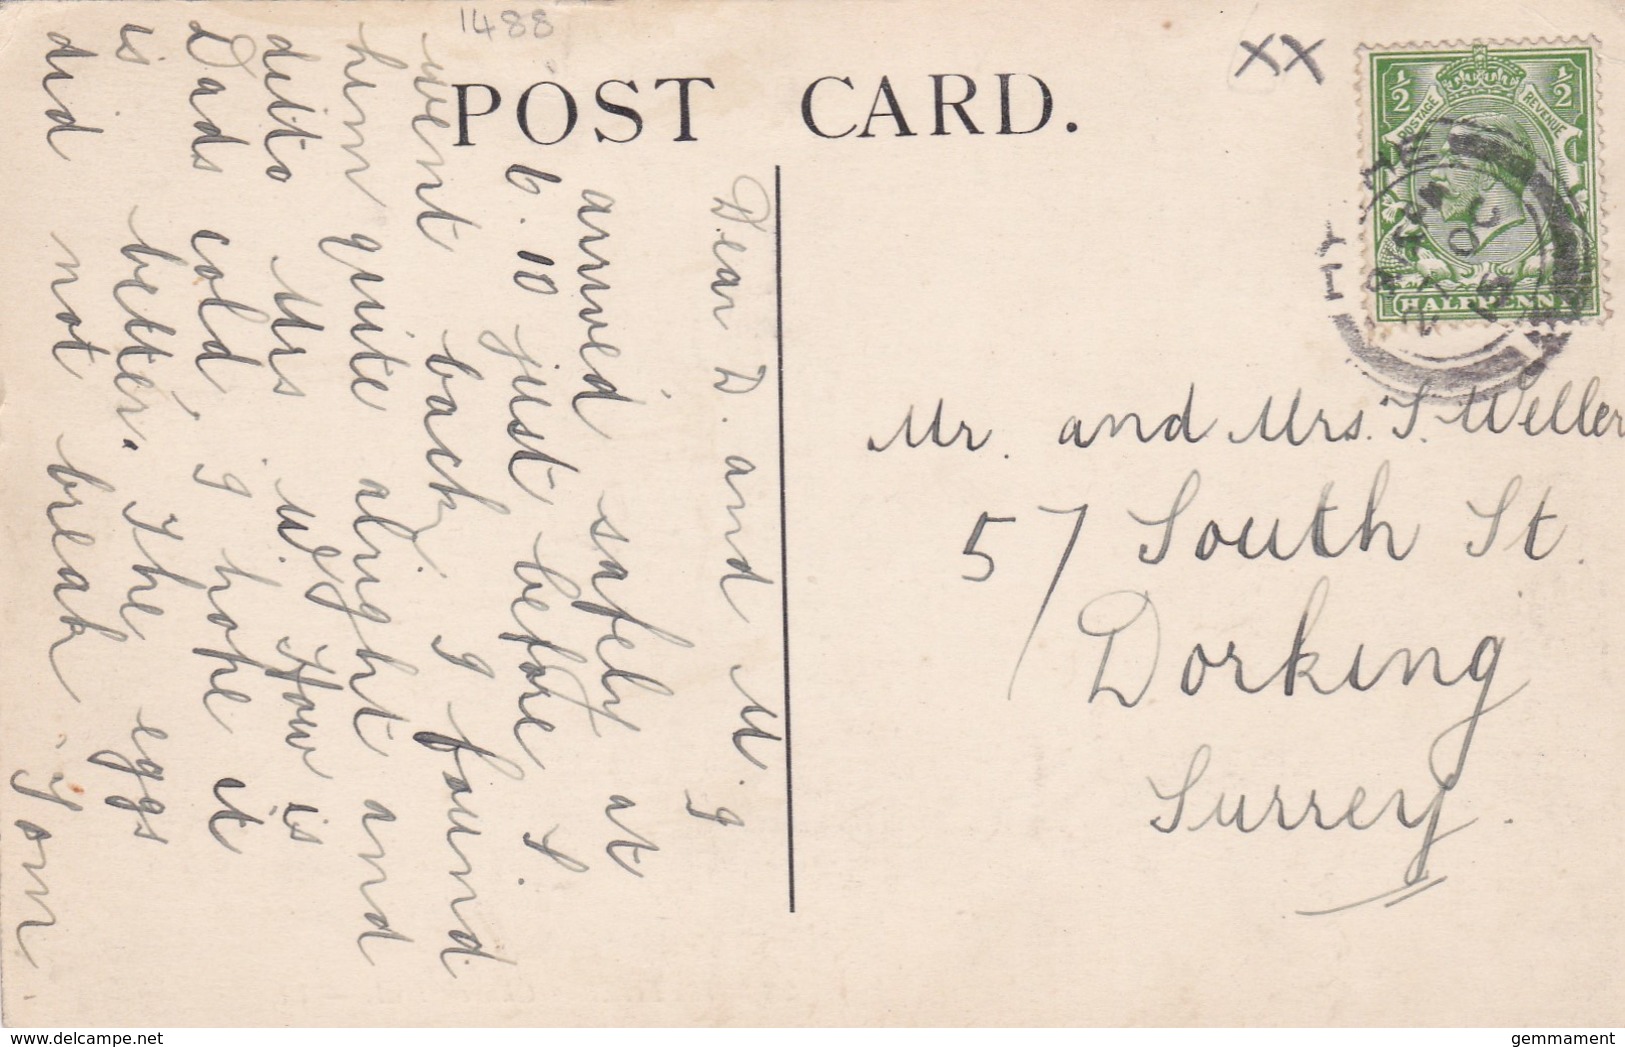 1488
POST CARD.
XX
½ ½
POSTAGE REVENUE
HALFPENNY
Dear D. and M. I
arrived safely at
6.10 just before S.
went back, I found
him quite alright and
ditto Mrs W. How is
Dads cold, I hope it
is better. The eggs
did not break. Tom.
Mr. and Mrs. T. Weller
57 South St.
Dorking
Surrey.
www.delcampe.net
gemmament